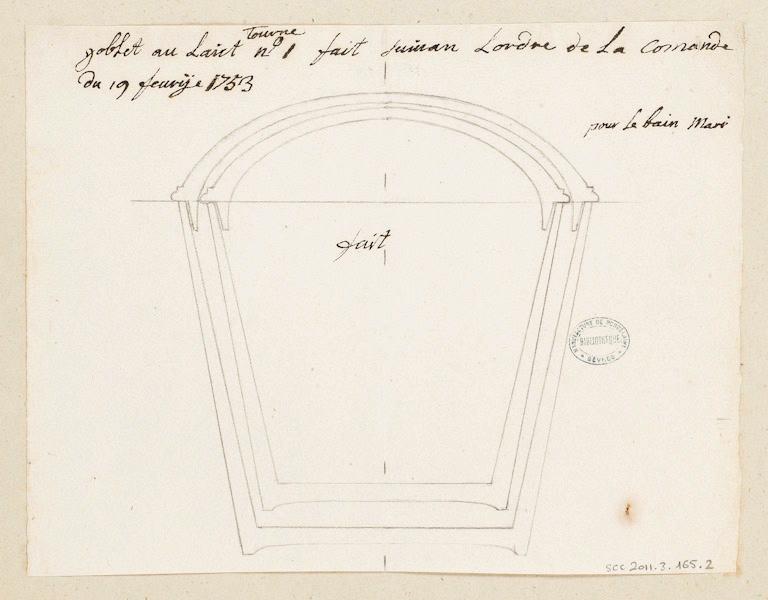 tourne
goblet au Lait n° 1 fait suivan Lordre de La Comande
du 19 feurije 1753
pour le bain Mari
fait
MANUFACTURE DE PORCELAINE
BIBLIOTHEQUE
SÈVRES
SCC 2011.3.165.2